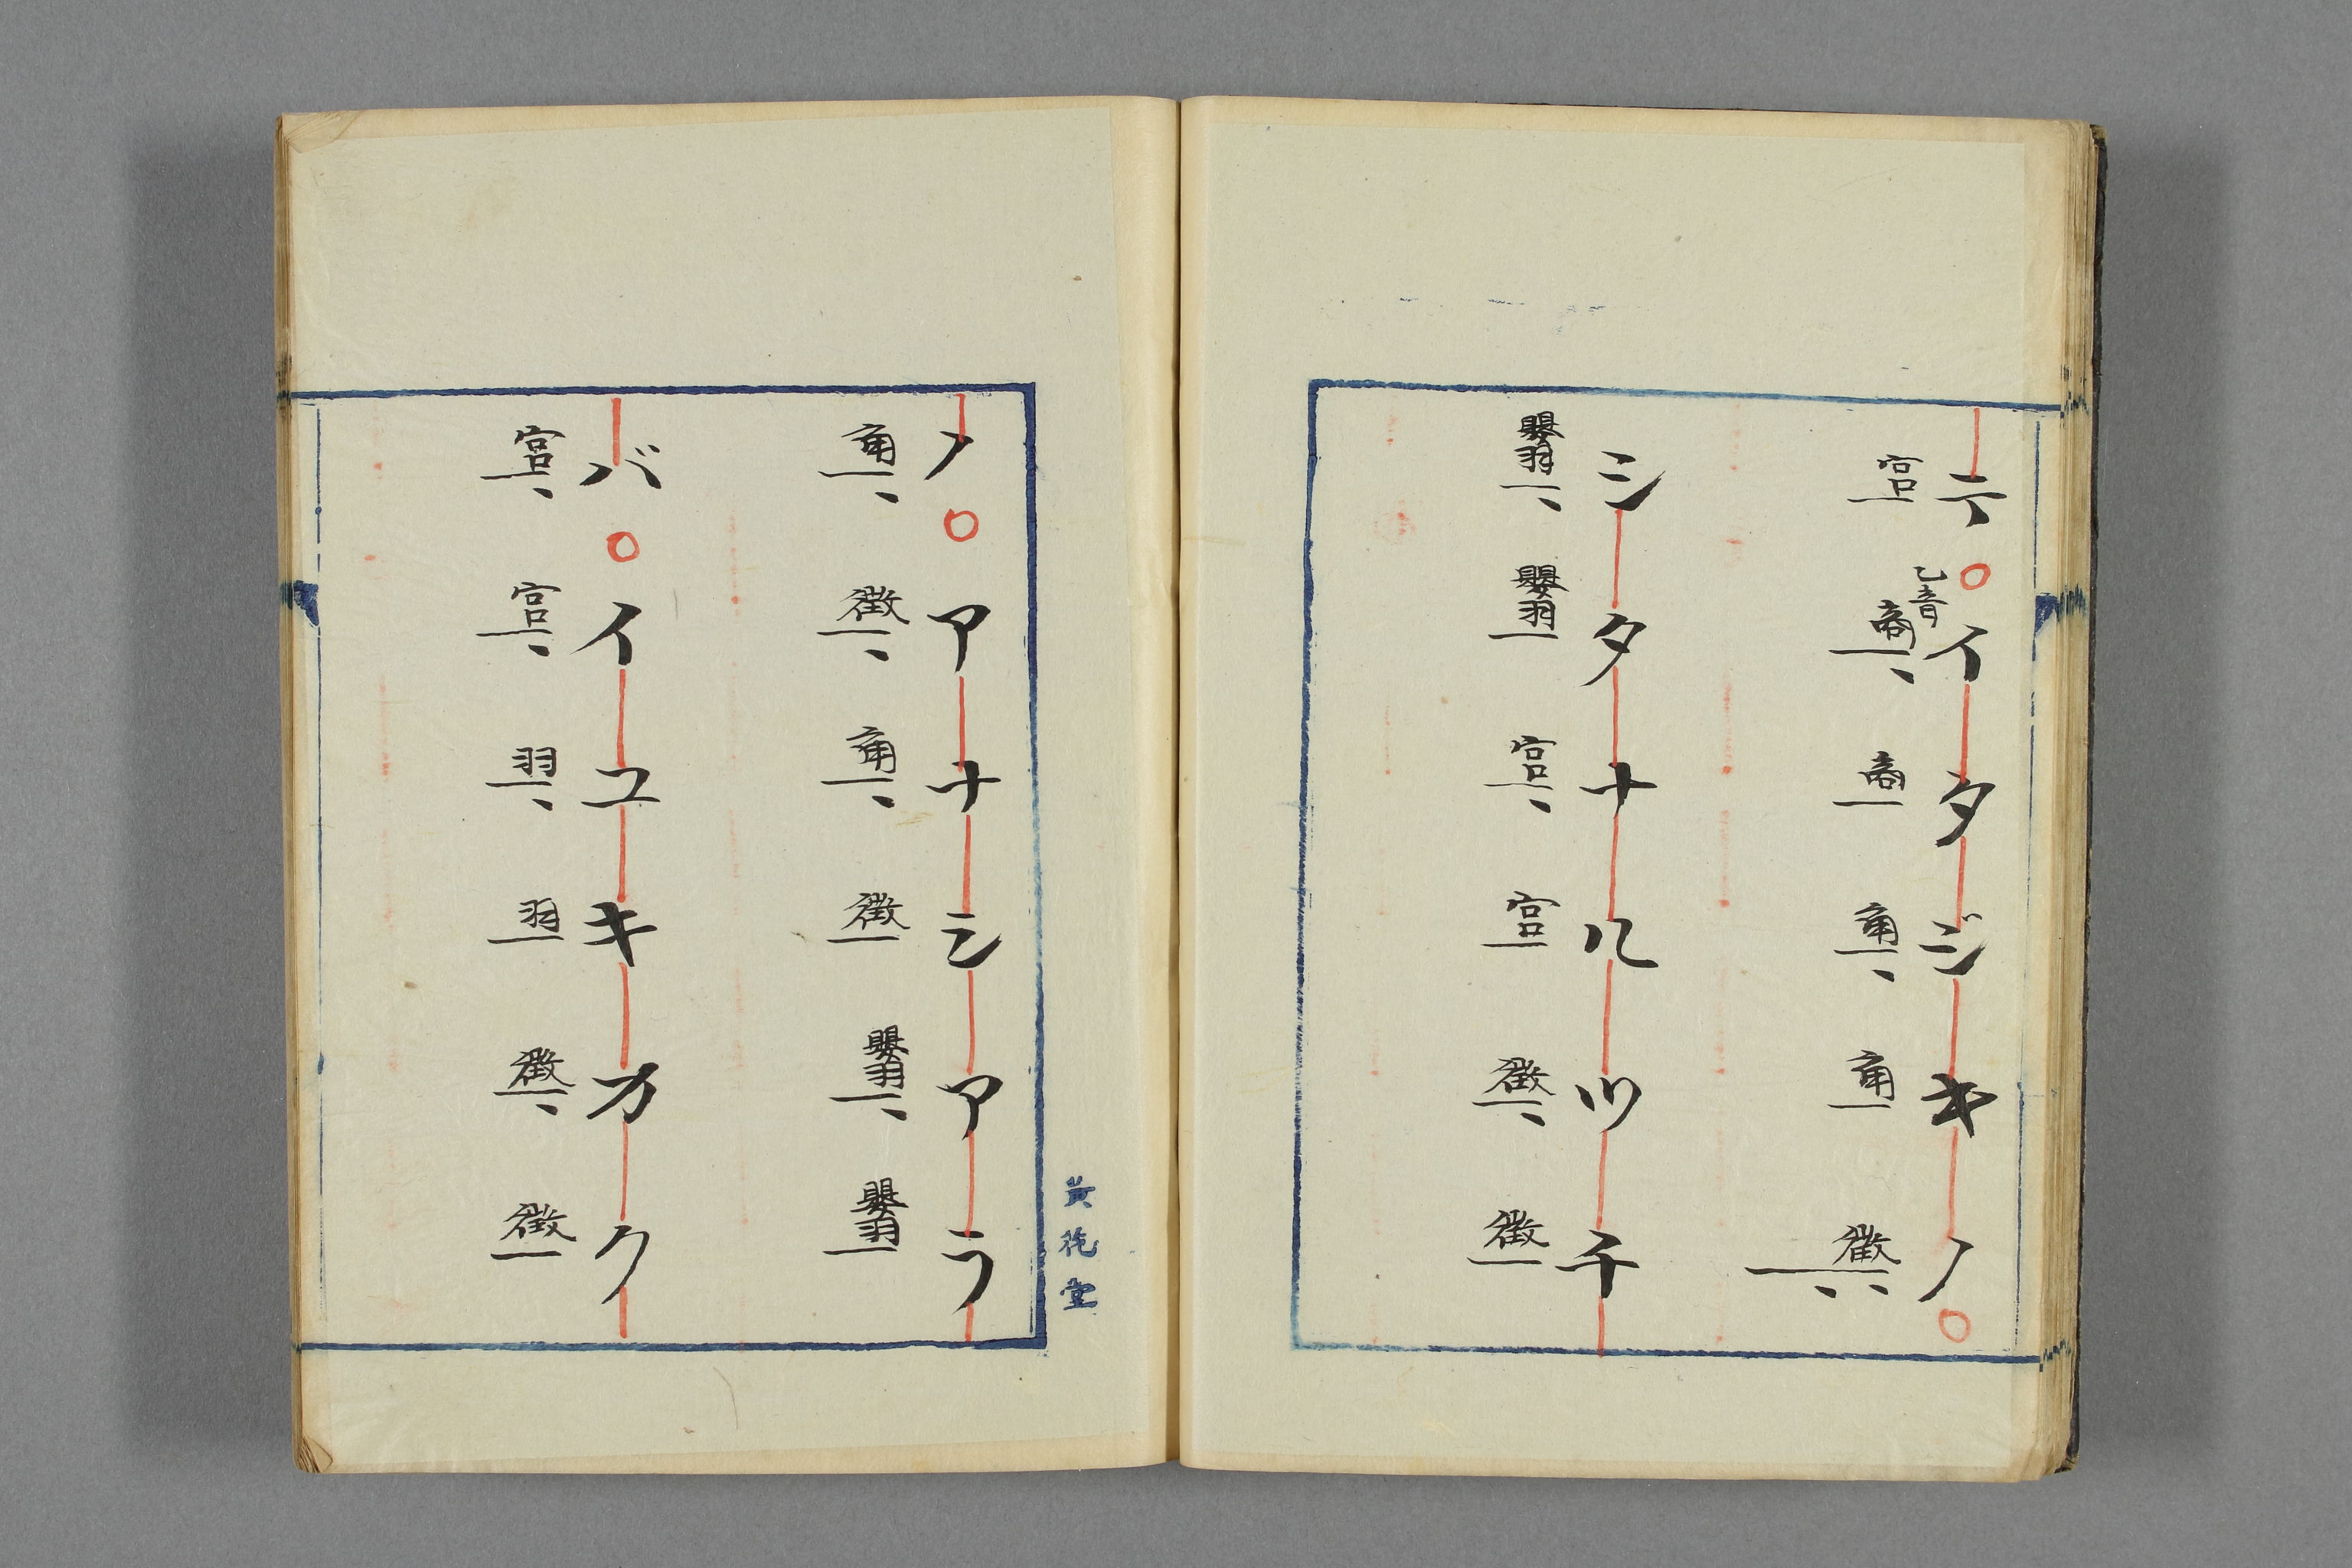 テ○イタジキノ○
宮 乙音 商 商 角 角 徴
シタナルツチ
嬰羽 嬰羽 宮 宮 徴 徴
黄 堂
ノ○アナシアラ
角 徴 角 徴 嬰羽 嬰羽
バ○イユキカク
宮 宮 羽 羽 徴 徴